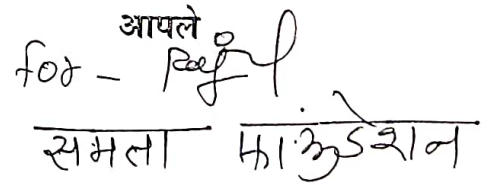 आपले
for -
समता फाऊंडेशन